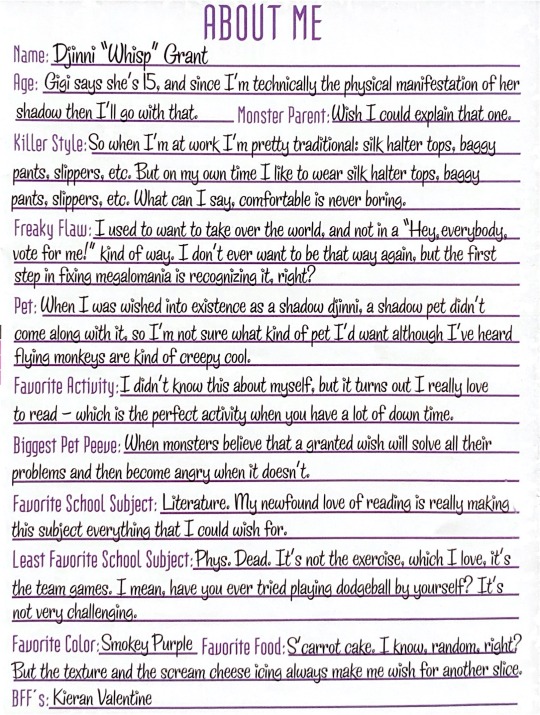 ABOUT ME
Name: Djinni "Whisp" Grant
Age: Gigi says she's 15, and since I'm technically the physical manifestation of her
shadow then I'll go with that. Monster Parent: Wish I could explain that one.
Killer Style: So when I'm at work I'm pretty traditional: silk halter tops, baggy
pants, slippers, etc. But on my own time I like to wear silk halter tops, baggy
pants, slippers, etc. What can I say, comfortable is never boring.
Freaky Flaw: I used to want to take over the world, and not in a "Hey, everybody,
vote for me!" kind of way. I don't ever want to be that way again, but the first
step in fixing megalomania is recognizing it, right?
Pet: When I was wished into existence as a shadow djinni, a shadow pet didn't
come along with it, so I'm not sure what kind of pet I'd want although I've heard
flying monkeys are kind of creepy cool.
Favorite Activity: I didn't know this about myself, but it turns out I really love
to read – which is the perfect activity when you have a lot of down time.
Biggest Pet Peeve: When monsters believe that a granted wish will solve all their
problems and then become angry when it doesn't.
Favorite School Subject: Literature. My newfound love of reading is really making
this subject everything that I could wish for.
Least Favorite School Subject: Phys. Dead. It's not the exercise, which I love, it's
the team games. I mean, have you ever tried playing dodgeball by yourself? It's
not very challenging.
Favorite Color: Smokey Purple Favorite Food: S'carrot cake. I know, random, right?
But the texture and the scream cheese icing always make me wish for another slice.
BFF's: Kieran Valentine